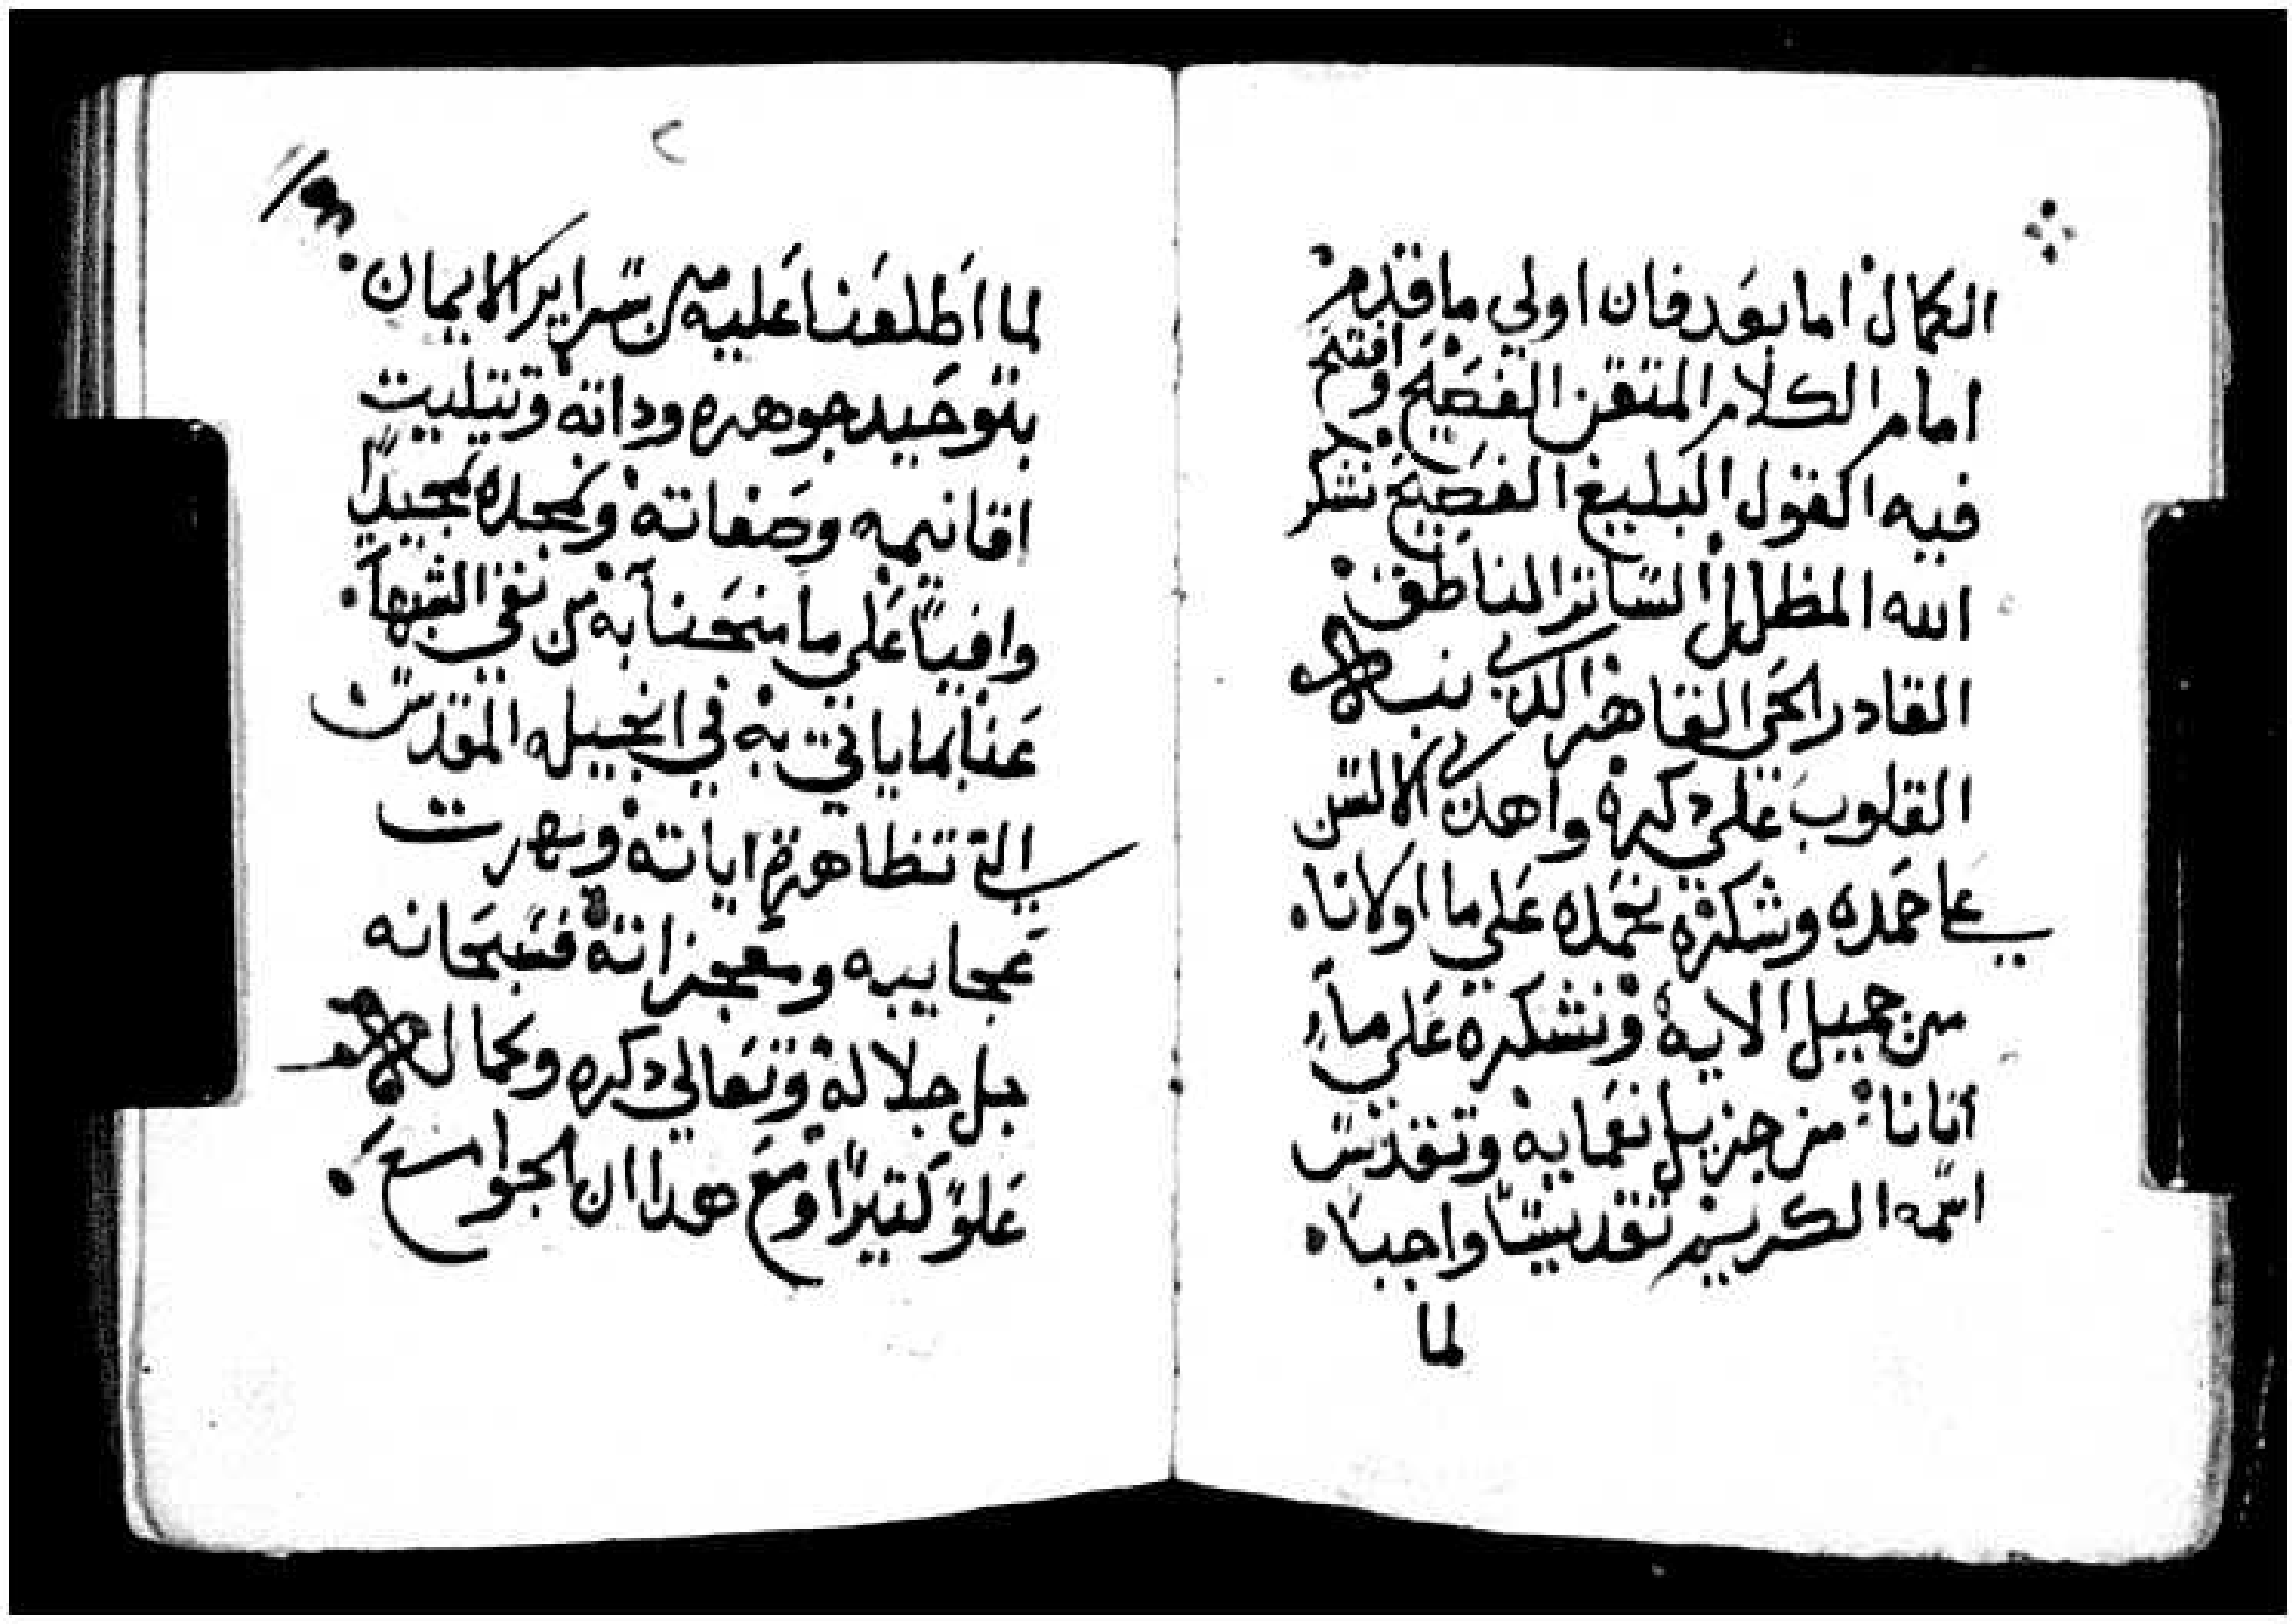 الكمال اما بعد فان اولي ما قدم
امام الكلام المتقن الفصيح وافتتح
فيه القول البليغ الفصيح نشكر
الله المظلل الساتر الناطق
القادر الحي القاهر الدي
القلوب علي دكره واهدي الالسن
علي حمده وشكره نحمده علي ما اولانا
من جميل الايه ونشكره علي ما
اتانا من جزيل نعمايه وتقدس
اسمه الكريم تقديسًا واجبا
لما
٢
لما اطلعنا عليه من سراير الايمان
بتوحيد جوهره وداته وتتليت
اقانيمه وصفاته ونمجده تمجيدًا
وافيًا علي ما منحنا به من نفي الشبها
عنا بما ياتي به في انجيله المقدس
التي تظاهرة اياته وبهرت
عجايبه ومعجزاته فسبحانه
جل جلاله وتعالي دكره وكماله
علوً كتيرًا ومع هدا ان الجوامع